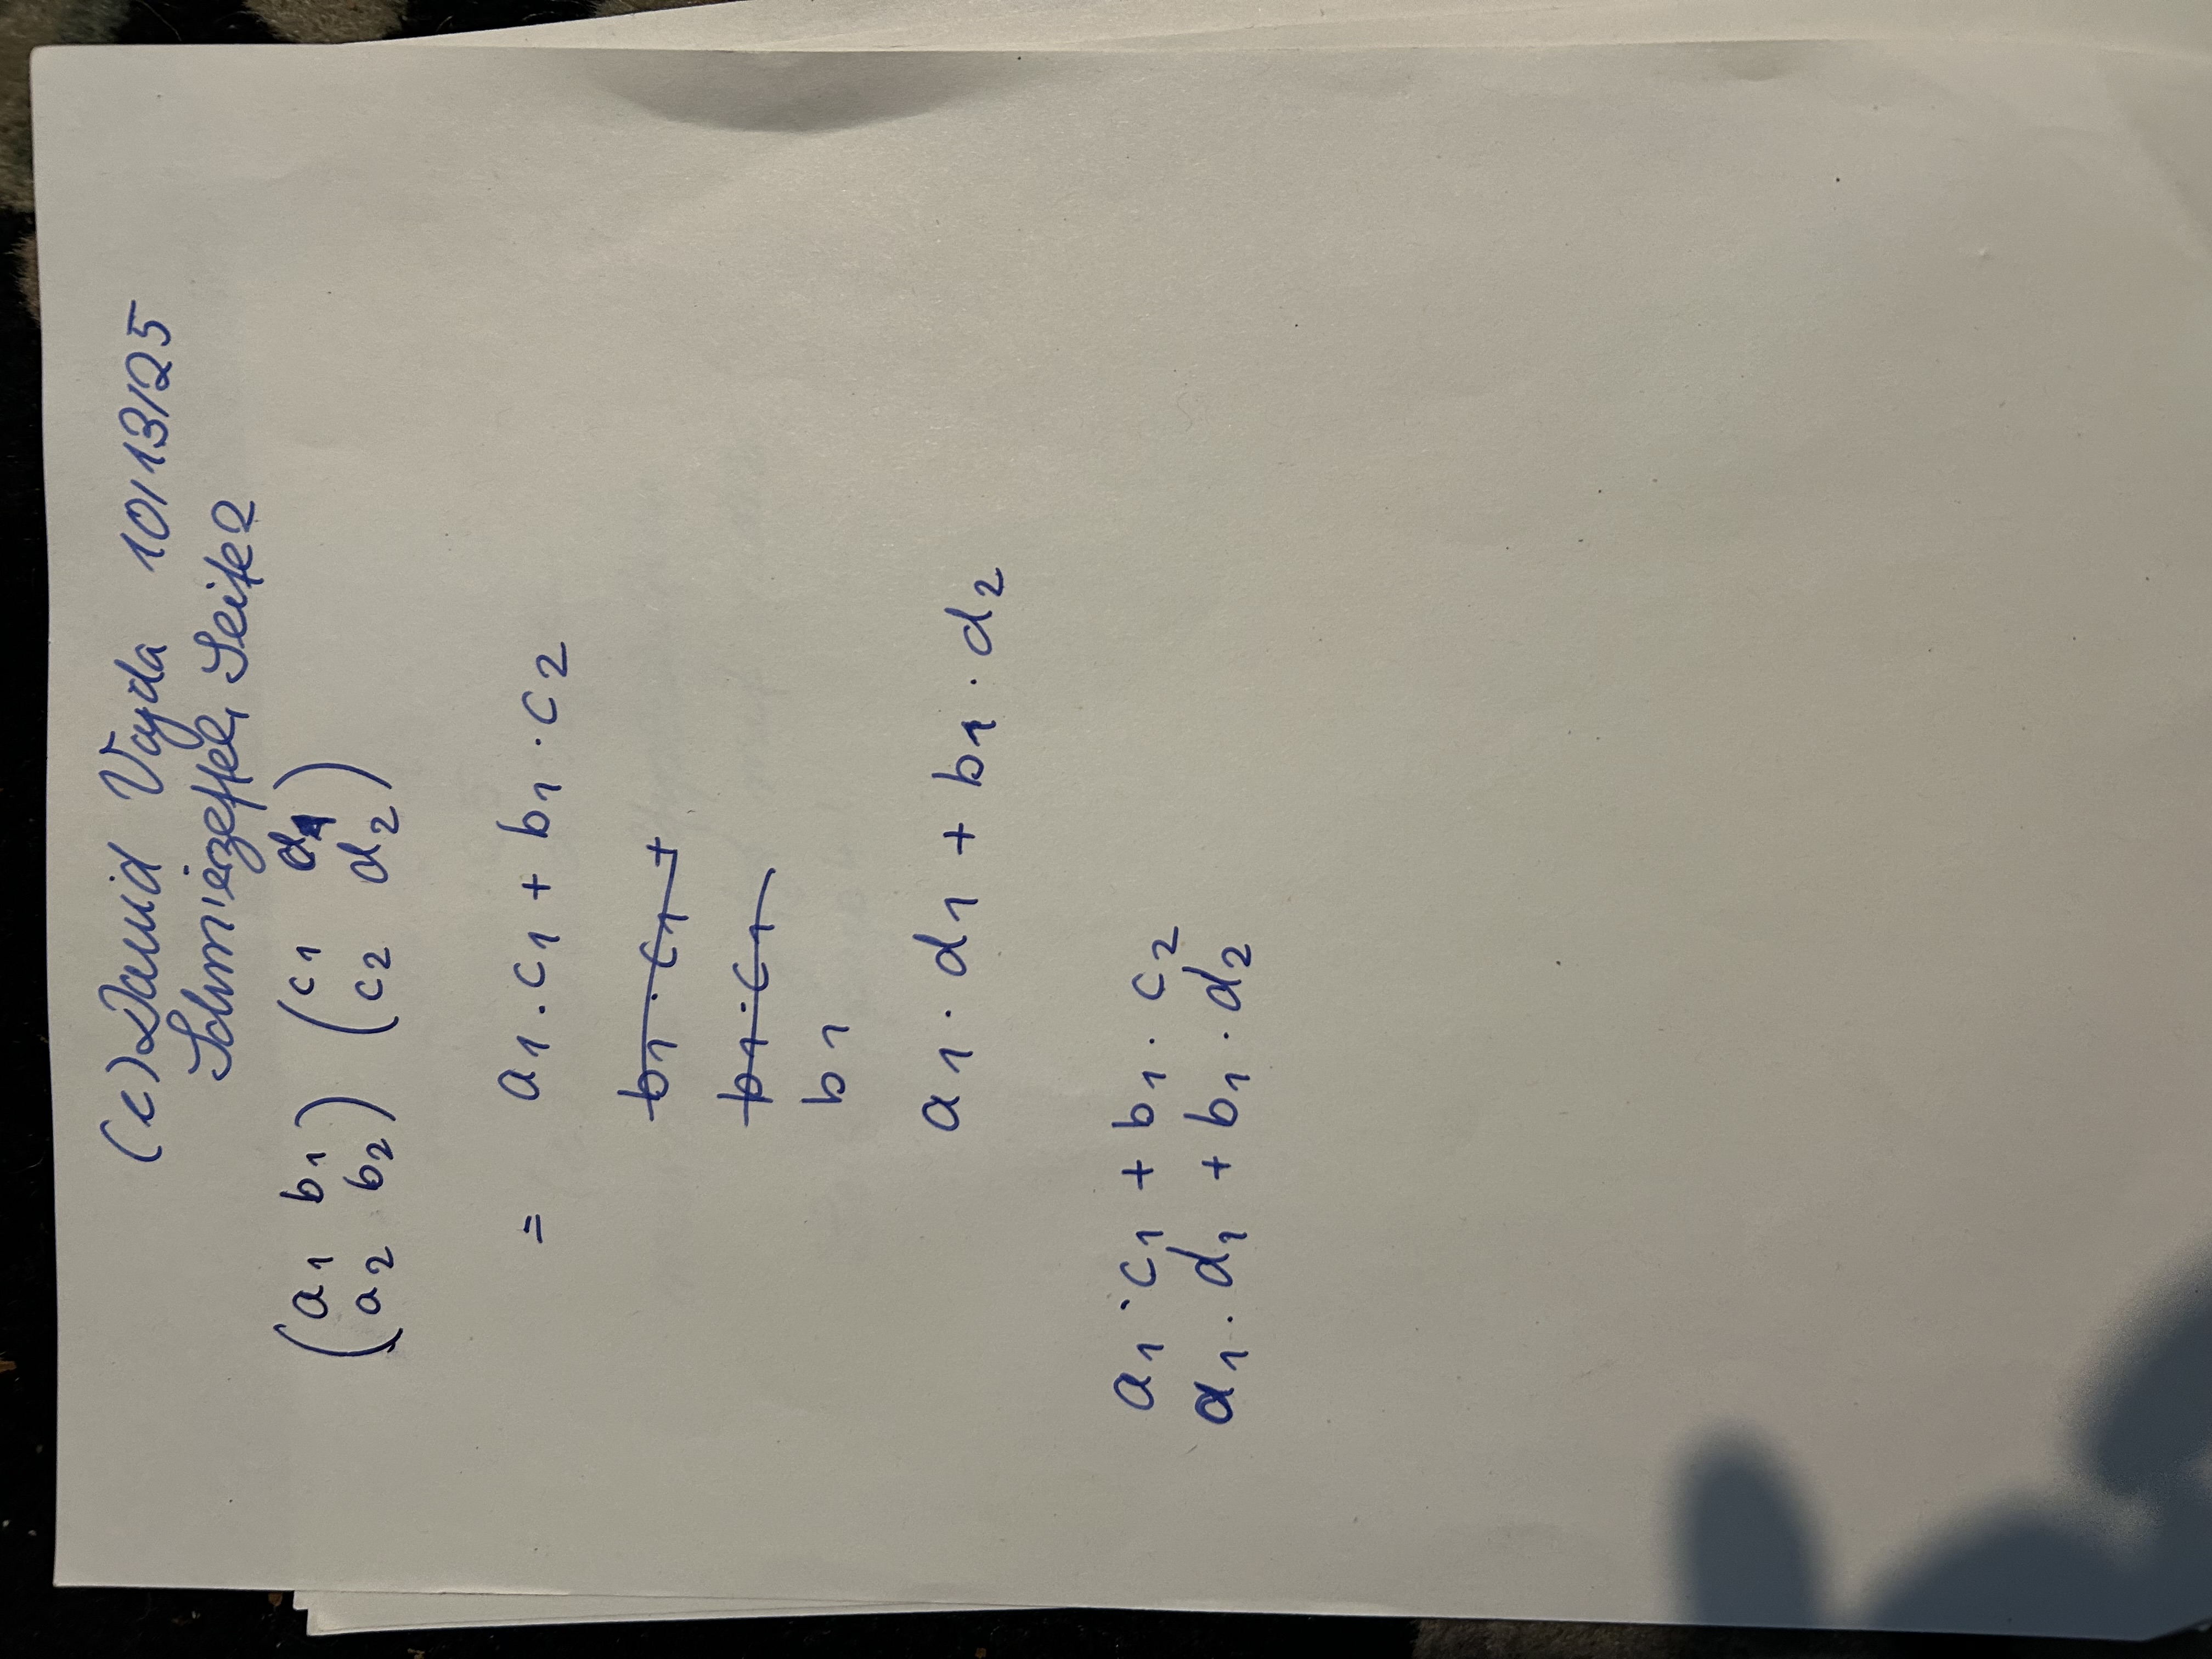 (c) David Vajda 10/13/25
Schmierzettel, Seite 2
(a1 b1) (c1 d1)
(a2 b2) (c2 d2)
= a1 · c1 + b1 · c2
b1 · c1 +
b1 · c1
b1
a1 · d1 + b1 · d2
a1 · c1 + b1 · c2
a1 · d1 + b1 · d2